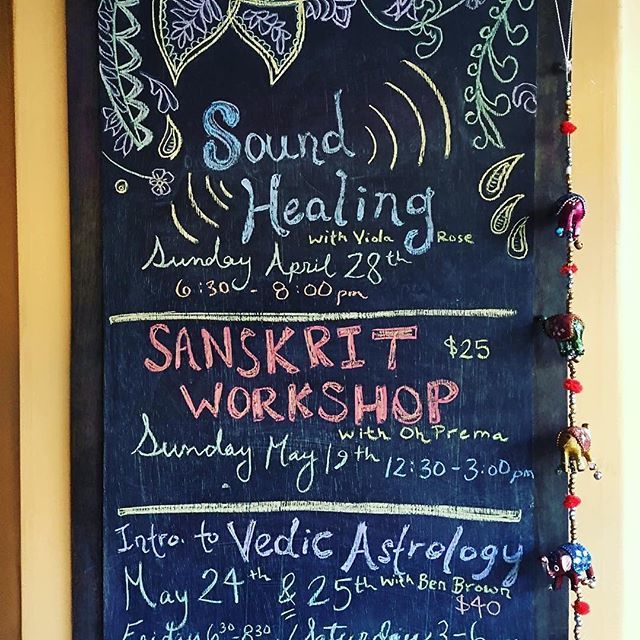 Sound
Healing
with Viola Rose
Sunday April 28th
6:30 - 8:00pm
SANSKRIT $25
WORKSHOP
with Oh Prema
Sunday May 19th 12:30-3:00pm
Intro. to Vedic Astrology
May 24th & 25th with Ben Brown
$40
Friday 6:30-8:30 / Saturday 3-6